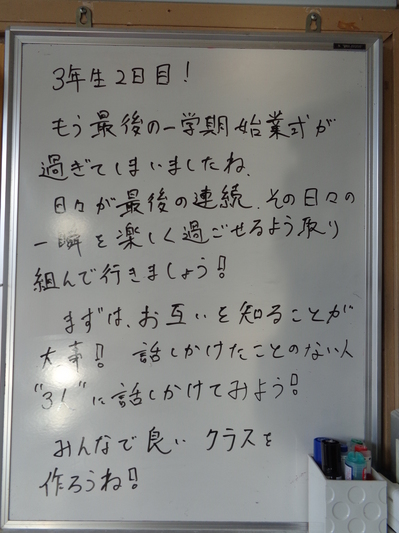 3年生2日目!
もう最後の一学期始業式が
過ぎてしまいましたね.
日々が最後の連続.その日々の
一瞬を楽しく過ごせるよう取り
組んで行きましょう!
まずは、お互いを知ることが
大事! 話しかけたことのない人
"3人"に話しかけてみよう!
みんなで良い クラスを
作ろうね!